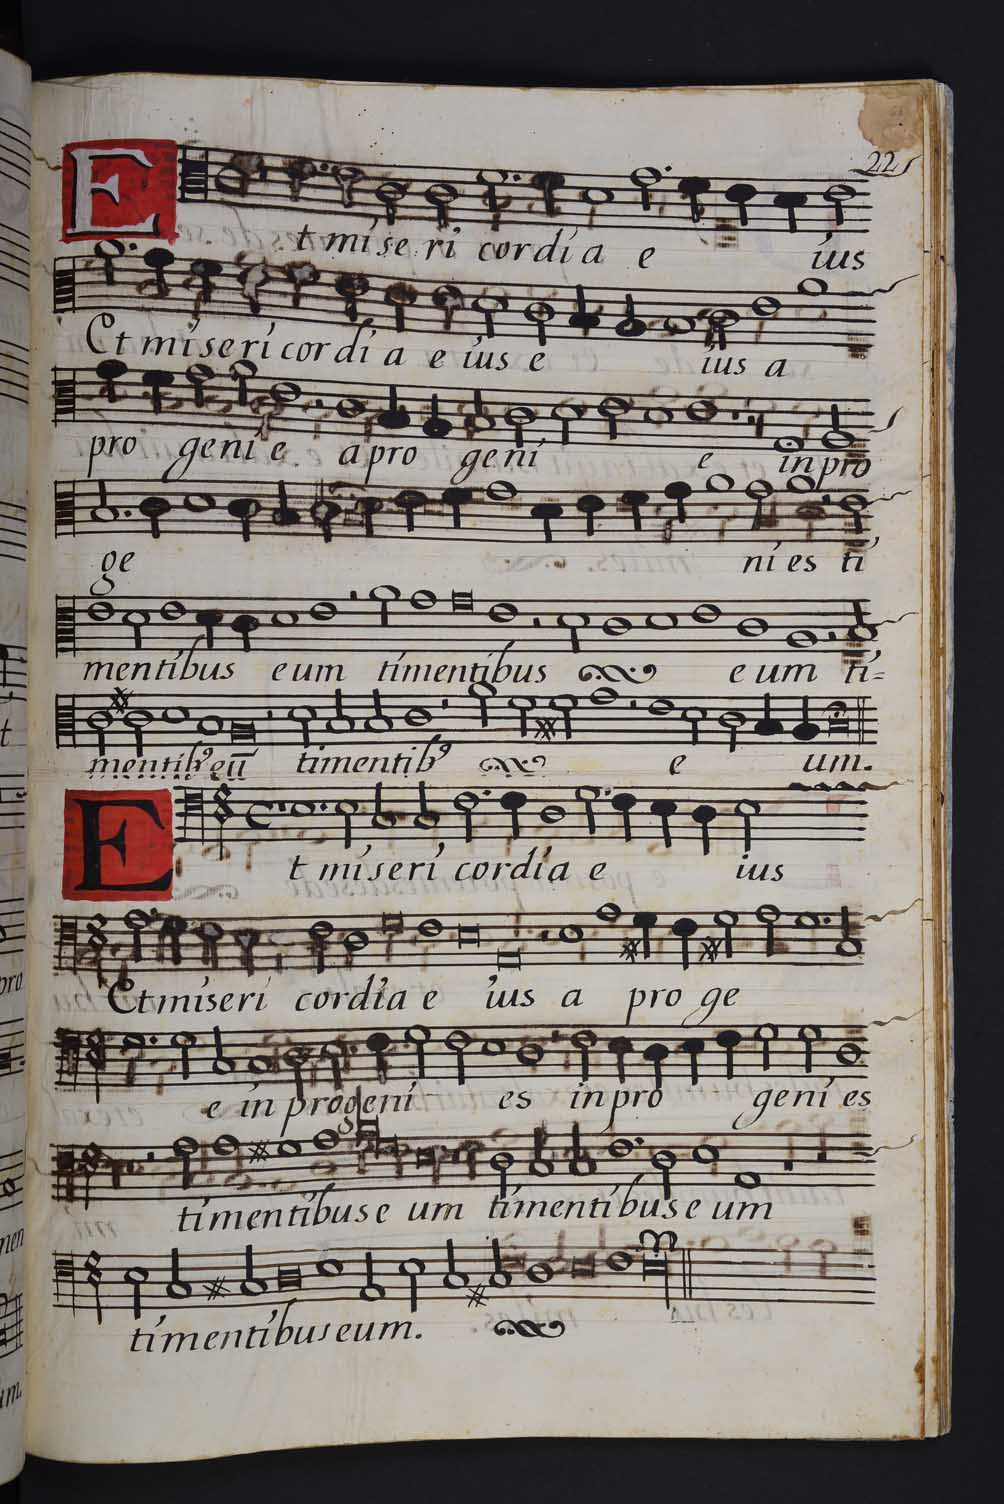 22
Et mi se ri cordia e ius
Et miseri cordia e ius e ius a
pro geni e apro geni e inpro
ge ni es ti
mentibus eum timentibus eum ti=
mentib⁹ eū timentib⁹ e um.
Et miseri cordia e ius
Et miseri cordia e ius a pro ge
e in progeni es inpro geni es
timentibus e um timentibus e um
timentibus eum.